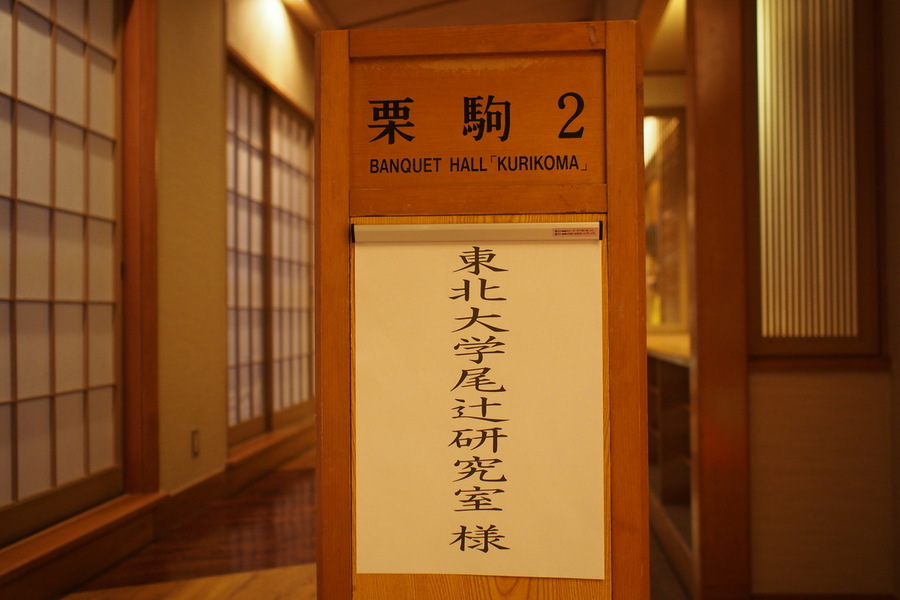 栗駒2
BANQUET HALL「KURIKOMA」
東北大学尾辻研究室様